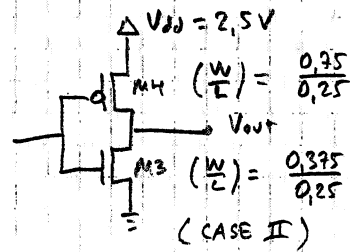 Vdd = 2,5V
M4 (W/L) = 0,75/0,25
Vout
M3 (W/L) = 0,375/0,25
(CASE II)